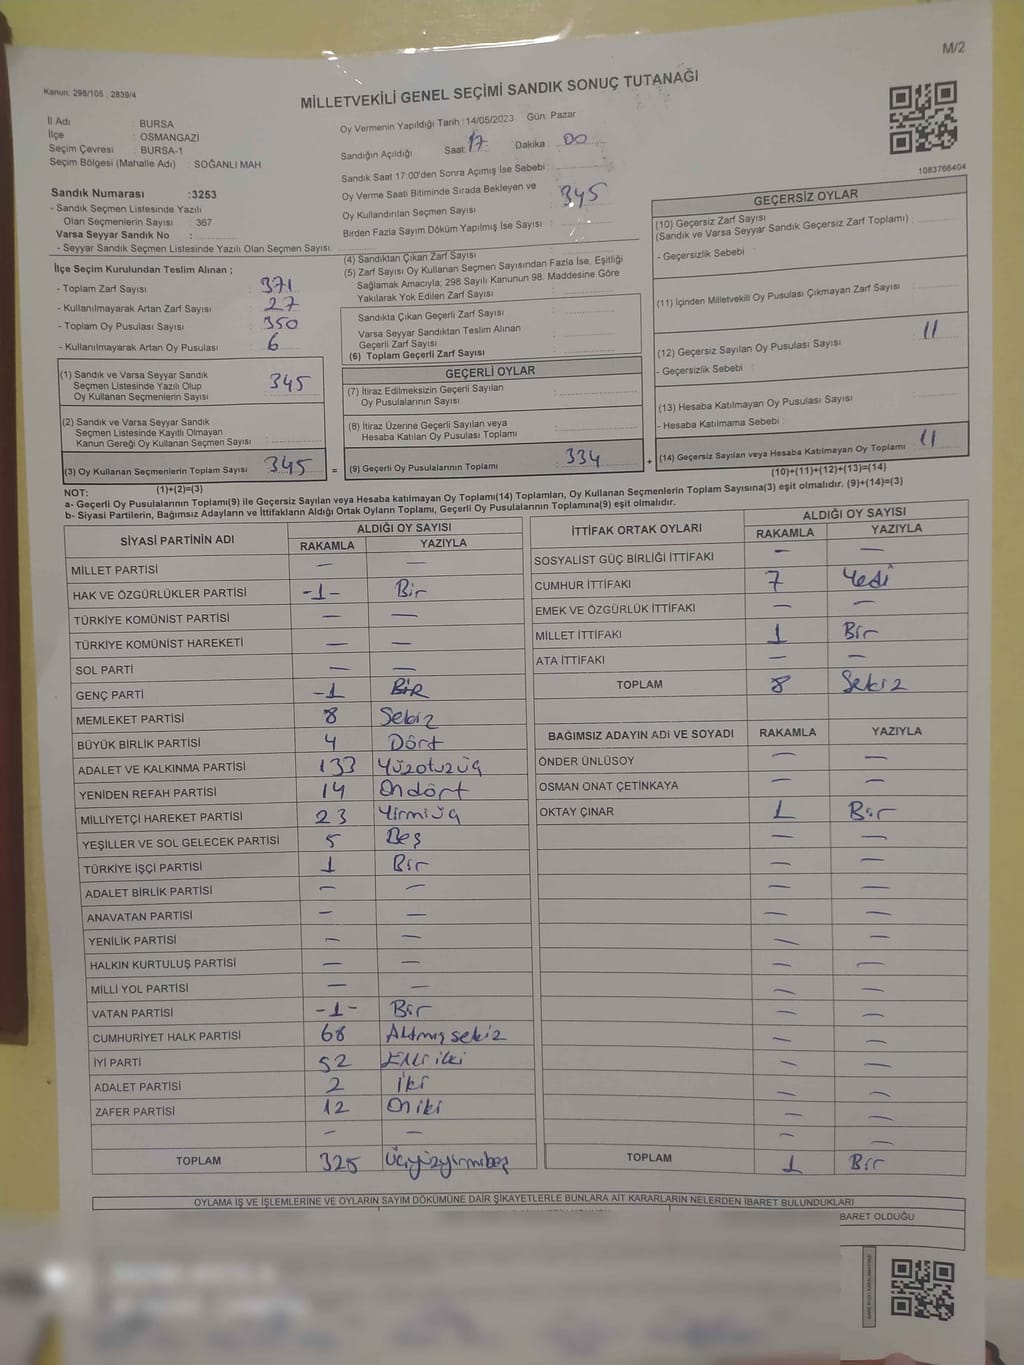 M/2
Kanun: 298/105 , 2839/4
MİLLETVEKİLİ GENEL SEÇİMİ SANDIK SONUÇ TUTANAĞI
İl Adı : BURSA
İlçe : OSMANGAZİ
Seçim Çevresi : BURSA-1
Seçim Bölgesi (Mahalle Adı) : SOĞANLI MAH.
Sandık Numarası :3253
- Sandık Seçmen Listesinde Yazılı
Olan Seçmenlerin Sayısı : 367
Varsa Seyyar Sandık No :
- Seyyar Sandık Seçmen Listesinde Yazılı Olan Seçmen Sayısı:
Oy Vermenin Yapıldığı Tarih :14/05/2023 Gün: Pazar
Sandığın Açıldığı Saat: 17 Dakika : 00
Sandık Saat 17:00'den Sonra Açımış İse Sebebi :
Oy Verme Saati Bitiminde Sırada Bekleyen ve
Oy Kullandırılan Seçmen Sayısı : 345
Birden Fazla Sayım Döküm Yapılmış İse Sayısı :
1083766404
İlçe Seçim Kurulundan Teslim Alınan ;
- Toplam Zarf Sayısı : 371
- Kullanılmayarak Artan Zarf Sayısı : 27
- Toplam Oy Pusulası Sayısı : 350
- Kullanılmayarak Artan Oy Pusulası : 6
(1) Sandık ve Varsa Seyyar Sandık
Seçmen Listesinde Yazılı Olup
Oy Kullanan Seçmenlerin Sayısı : 345
(2) Sandık ve Varsa Seyyar Sandık
Seçmen Listesinde Kayıtlı Olmayan
Kanun Gereği Oy Kullanan Seçmen Sayısı :
(3) Oy Kullanan Seçmenlerin Toplam Sayısı : 345
(1)+(2)=(3)
(4) Sandıktan Çıkan Zarf Sayısı :
(5) Zarf Sayısı Oy Kullanan Seçmen Sayısından Fazla İse, Eşitliği
Sağlamak Amacıyla; 298 Sayılı Kanunun 98. Maddesine Göre
Yakılarak Yok Edilen Zarf Sayısı :
Sandıkta Çıkan Geçerli Zarf Sayısı :
Varsa Seyyar Sandıktan Teslim Alınan
Geçerli Zarf Sayısı :
(6) Toplam Geçerli Zarf Sayısı :
GEÇERLİ OYLAR
(7) İtiraz Edilmeksizin Geçerli Sayılan
Oy Pusulalarının Sayısı :
(8) İtiraz Üzerine Geçerli Sayılan veya
Hesaba Katılan Oy Pusulası Toplamı :
= (9) Geçerli Oy Pusulalarının Toplamı : 334
GEÇERSİZ OYLAR
(10) Geçersiz Zarf Sayısı
(Sandık ve Varsa Seyyar Sandık Geçersiz Zarf Toplamı) :
- Geçersizlik Sebebi :
(11) İçinden Milletvekili Oy Pusulası Çıkmayan Zarf Sayısı :
(12) Geçersiz Sayılan Oy Pusulası Sayısı : 11
- Geçersizlik Sebebi :
(13) Hesaba Katılmayan Oy Pusulası Sayısı :
- Hesaba Katılmama Sebebi :
+ (14) Geçersiz Sayılan veya Hesaba Katılmayan Oy Toplamı : 11
(10)+(11)+(12)+(13)=(14)
NOT:
a- Geçerli Oy Pusulalarının Toplamı(9) ile Geçersiz Sayılan veya Hesaba katılmayan Oy Toplamı(14) Toplamları, Oy Kullanan Seçmenlerin Toplam Sayısına(3) eşit olmalıdır. (9)+(14)=(3)
b- Siyasi Partilerin, Bağımsız Adayların ve İttifakların Aldığı Ortak Oyların Toplamı, Geçerli Oy Pusulalarının Toplamına(9) eşit olmalıdır.
SİYASİ PARTİNİN ADI ALDIĞI OY SAYISI
RAKAMLA YAZIYLA
MİLLET PARTİSİ — —
HAK VE ÖZGÜRLÜKLER PARTİSİ -1- Bir
TÜRKİYE KOMÜNİST PARTİSİ — —
TÜRKİYE KOMÜNİST HAREKETİ — —
SOL PARTİ — —
GENÇ PARTİ -1 BİR
MEMLEKET PARTİSİ 8 Sekiz
BÜYÜK BİRLİK PARTİSİ 4 Dört
ADALET VE KALKINMA PARTİSİ 133 Yüzotuzüç
YENİDEN REFAH PARTİSİ 14 Ondört
MİLLİYETÇİ HAREKET PARTİSİ 23 Yirmiüç
YEŞİLLER VE SOL GELECEK PARTİSİ 5 Beş
TÜRKİYE İŞÇİ PARTİSİ 1 Bir
ADALET BİRLİK PARTİSİ — —
ANAVATAN PARTİSİ — —
YENİLİK PARTİSİ — —
HALKIN KURTULUŞ PARTİSİ — —
MİLLİ YOL PARTİSİ — —
VATAN PARTİSİ -1- Bir
CUMHURİYET HALK PARTİSİ 68 Altmışsekiz
İYİ PARTİ 52 Elliiki
ADALET PARTİSİ 2 iki
ZAFER PARTİSİ 12 Oniki
— —
TOPLAM 325 Üçyüzyirmibeş
İTTİFAK ORTAK OYLARI ALDIĞI OY SAYISI
RAKAMLA YAZIYLA
SOSYALİST GÜÇ BİRLİĞİ İTTİFAKI — —
CUMHUR İTTİFAKI 7 Yedi
EMEK VE ÖZGÜRLÜK İTTİFAKI — —
MİLLET İTTİFAKI 1 Bir
ATA İTTİFAKI — —
TOPLAM 8 Sekiz
BAĞIMSIZ ADAYIN ADI VE SOYADI RAKAMLA YAZIYLA
ÖNDER ÜNLÜSOY — —
OSMAN ONAT ÇETİNKAYA — —
OKTAY ÇINAR 1 Bir
— —
— —
— —
— —
— —
— —
— —
— —
— —
— —
— —
— —
— —
TOPLAM 1 Bir
OYLAMA İŞ VE İŞLEMLERİNE VE OYLARIN SAYIM DÖKÜMÜNE DAİR ŞİKAYETLERLE BUNLARA AİT KARARLARIN NELERDEN İBARET BULUNDUKLARI
BARET OLDUĞU